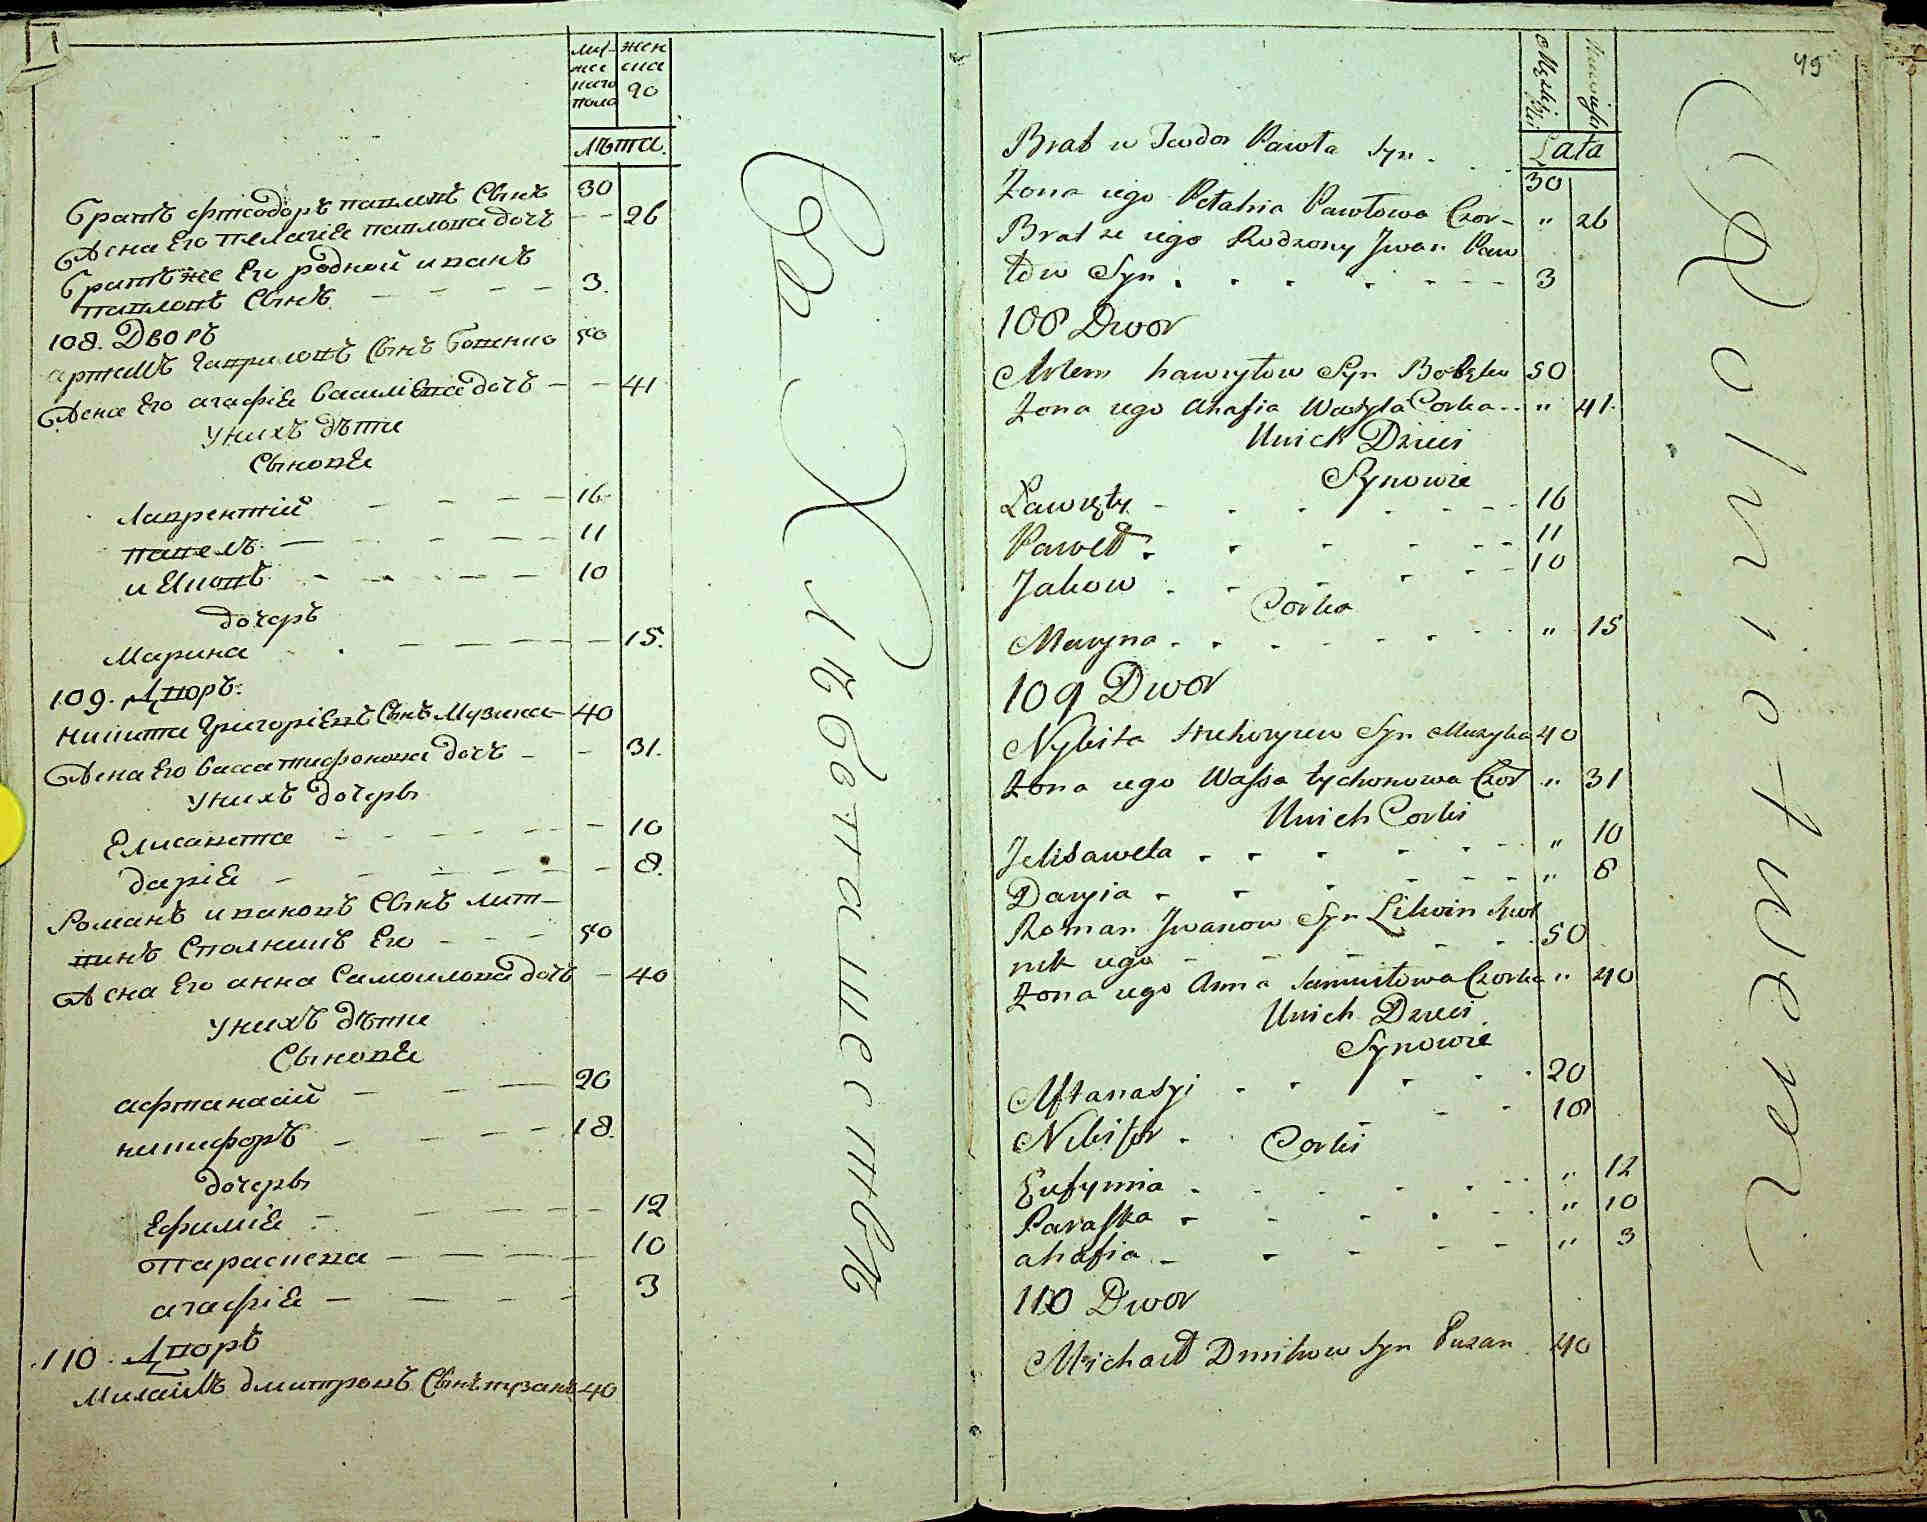 муже
ска
наго
пола
жен
ска
го
Лѣта.
Братъ Фтеодоръ павловъ Сынъ 30
Жена Его пелагіе павлова дочъ - - 26
Братъ же Его родной иванъ
павловъ Сынъ - - - - 3.
108. Дворъ
артемъ гавриловъ Сынъ Бошко 50
Жена Его агафіе василіева дочъ - - 41
Унихъ дѣти
Сыновѣ
Лаврентій - - - - 16.
павелъ - - - - 11
и Яковъ - - - - 10
дочеръ
Марина - - - - 15.
109. Дворъ:
никита Григоріевъ Сынъ Музыка - 40
Жена Его васса тифонова дочъ - - 31.
Унихъ дочеры
Елисавета - - - - 10
даріе - - - - 8.
Романъ ивановъ Сынъ лит-
винъ Сполникъ Его - - - 50
Жена Его анна самоилова дочъ - 40
Унихъ дѣти
Сыновѣ
афтанасій - - - 20
никифоръ - - - - 18.
дочеры
Ефиміе - - - - 12
параскева - - - - 10
агафіе - - - - 3
110. Дворъ
Михаилъ дмитровъ Сынъ пузанъ 40
Въ Хлѣбопашествѣ
49
Lata
Brat w Teodor Pawła Syn . 30
Żona iego Pełahia Pawłowa Czor- " 26
Brat ze iego Rodzony Jwan Paw
łow Syn . . . . . - - - 3
108 Dwor
Artem hawryłow Syn Boszko 50
Żona iego Ahafia Wasyla Corka .. " 41.
Unich Dzieci
Synowie
Ławręty - . . . . . - - 16
Paweł . . - - - - 11
Jakow . - - - - - 10
Corka
Maryna . . . . . . . " 15
109 Dwor
Nykita hrehoryiew Syn Muzyka 40
Żona iego Wassa tychonowa Czor " 31
Unich Corki
Jelisaweta . . . . . - - " 10
Daryia - - - - - - " 8
Roman Jwanow Syn Litwin Społ
nik iego - - - - - . 50
Żona iego Anna Samuiłowa Czorka " 40
Unich Dzieci
Synowie
Aftanasyi . . . . . 20
Nikifor . . - - 18
Corki
Eufymia . . . . . - - " 12
Paraska - - - . - . " 10
ahafia - - - - - " 3
110 Dwor
Michaił Dmitrow Syn Puzan . 40
Rolnictwem